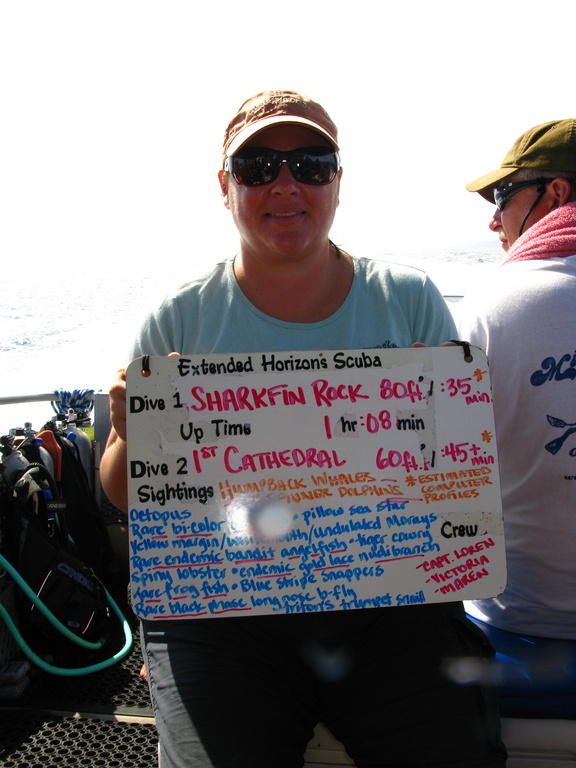 Extended Horizon's Scuba
Dive 1 SHARKFIN ROCK 80ft./:35 min.*
Up Time 1 hr :08 min
Dive 2 1ST CATHEDRAL 60ft./:45+ min*
Sightings HUMPBACK WHALES
SPINNER DOLPHINS
*ESTIMATED
COMPUTER
PROFILES
Octopus
Rare bi-color • pillow sea star
Yellow margin/ /undulated Morays
Rare endemic bandit angelfish • tiger cowry
Spiny lobster • endemic gold lace nudibranch
Rare frog fish • Blue stripe snappers
Rare black phase long nose b-fly
Triton's trumpet snail
Crew
-CAPT. LOREN
-VICTORIA
-MAREN